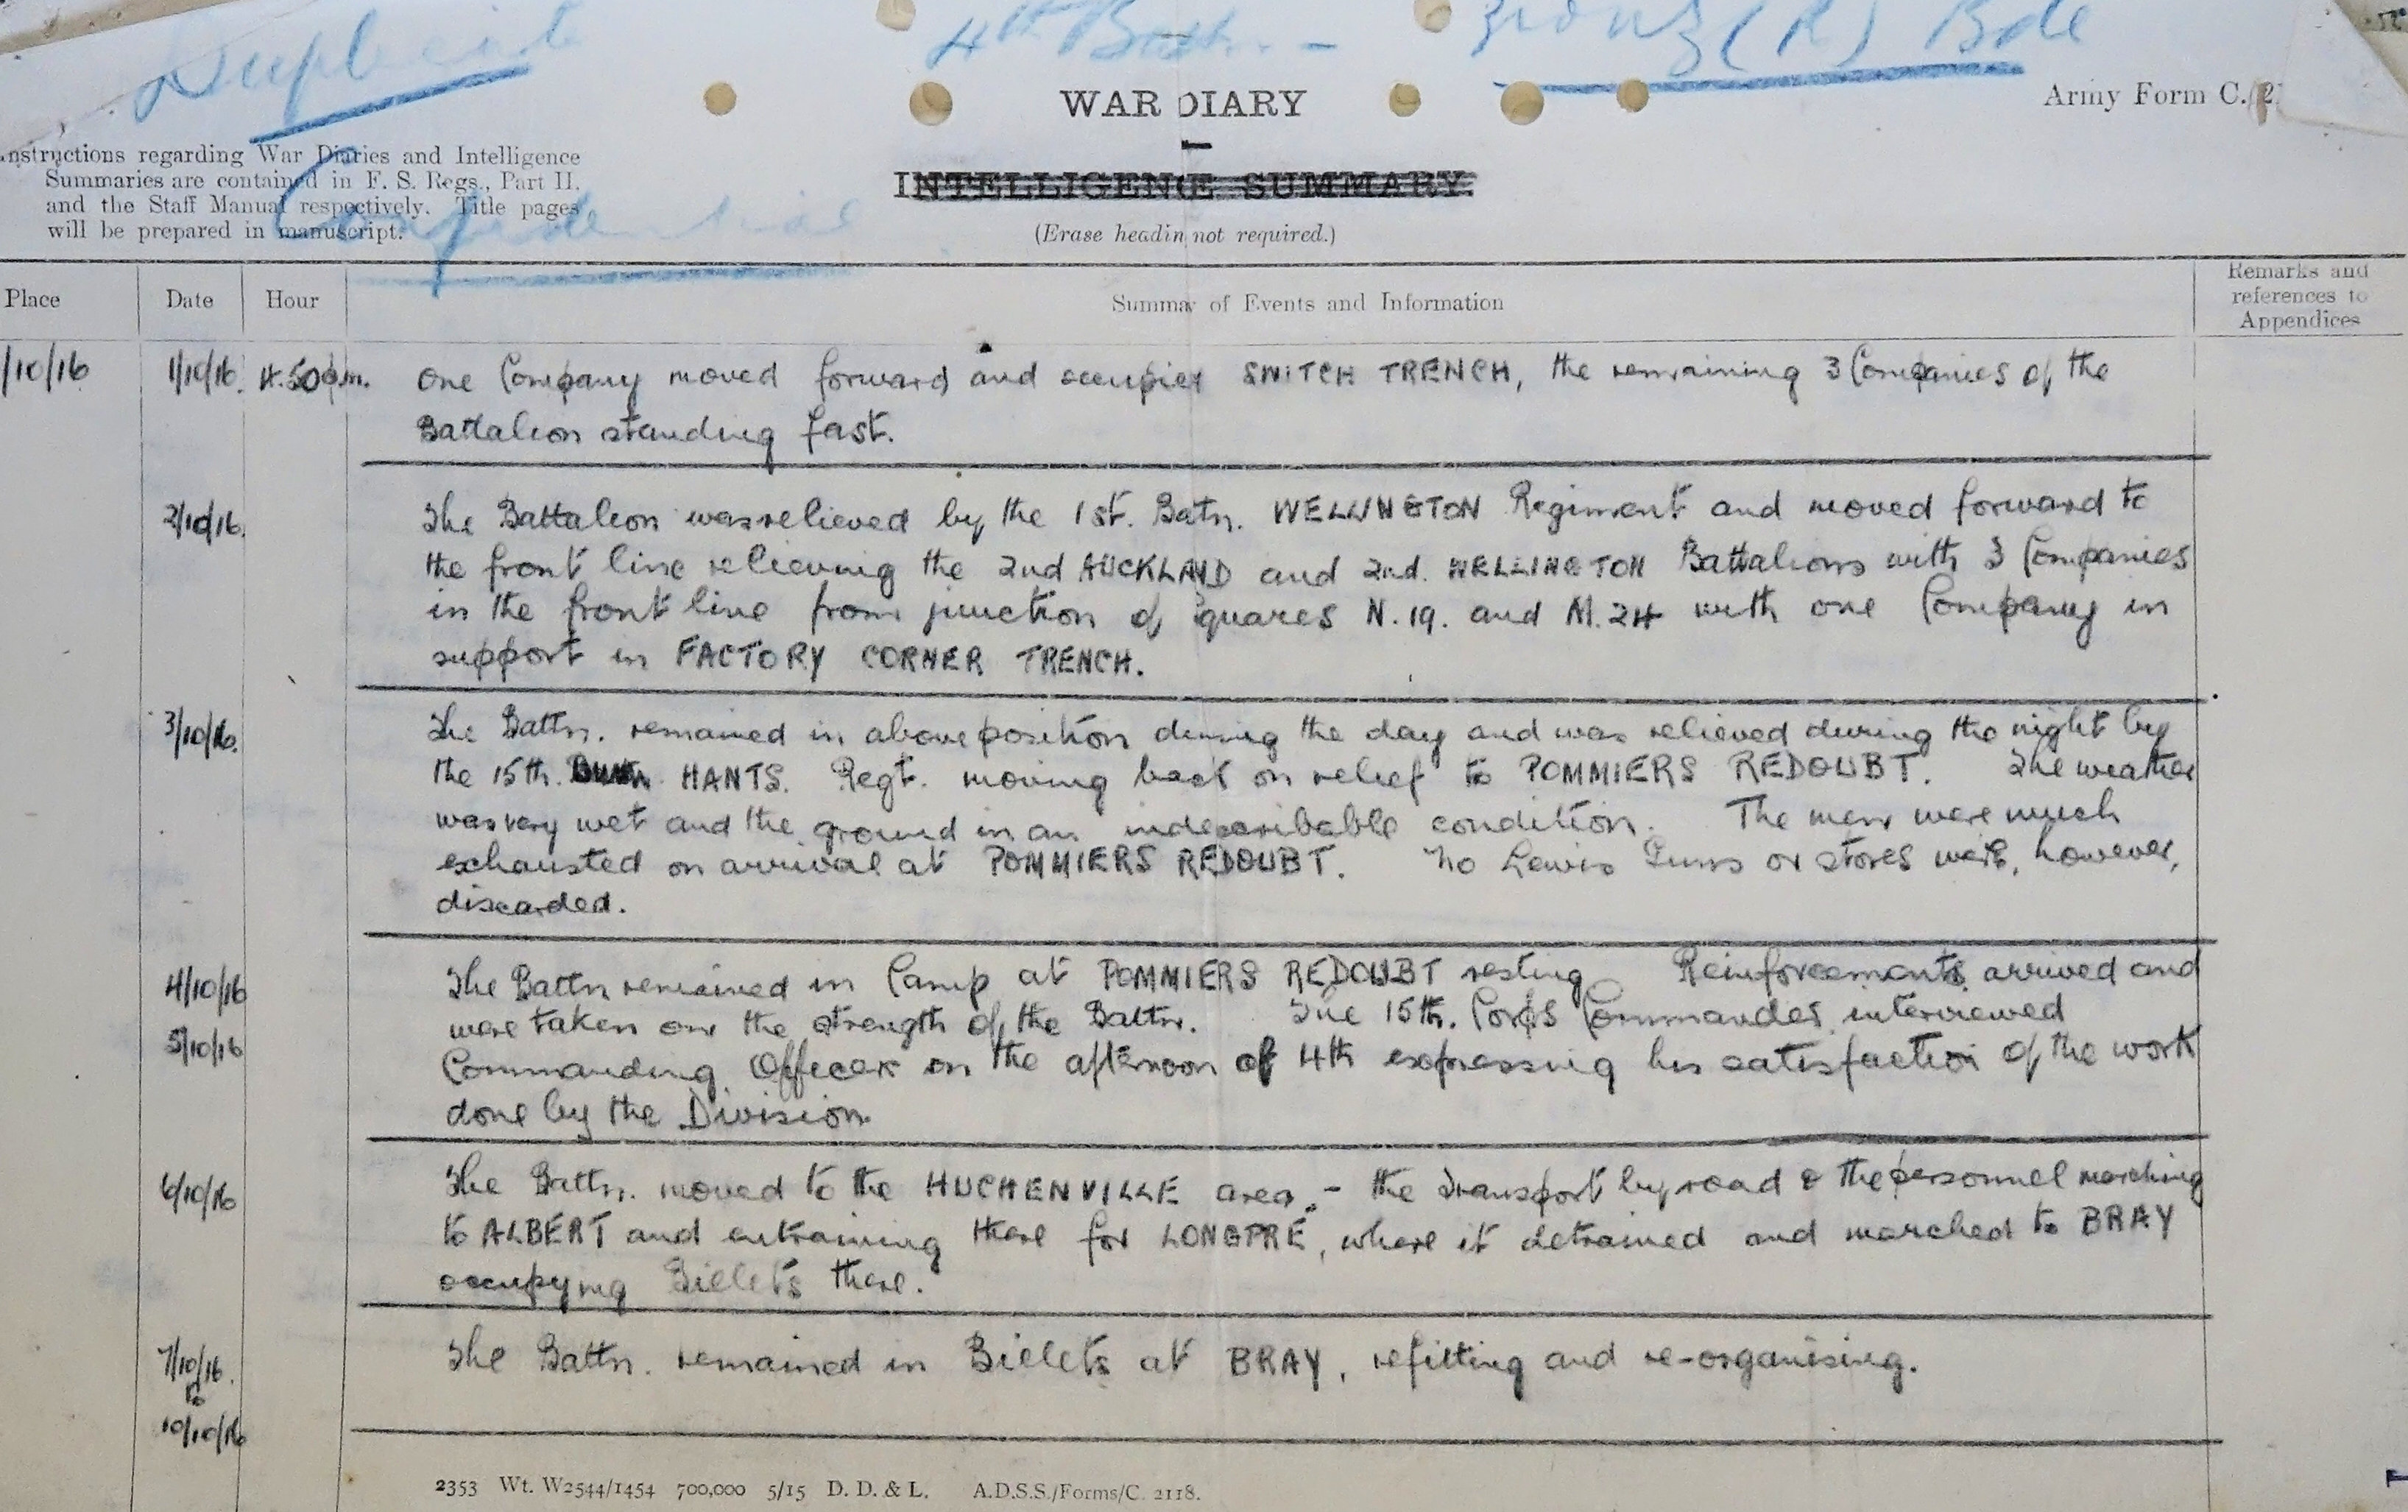 Duplicate
4th Battn. - 3rd NZ (R) Bde
WAR DIARY
Army Form C. 2
Instructions regarding War Diaries and Intelligence
Summaries are contained in F. S. Regs., Part II.
and the Staff Manual respectively. Title pages
will be prepared in manuscript.
Confidential
INTELLIGENCE SUMMARY.
(Erase headin not required.)
Place Date Hour Summa of Events and Information Remarks and
references to
Appendices
/10/16 1/10/16. 4.50p.m. One Company moved forward and occupied SWITCH TRENCH, the remaining 3 Companies of the
Battalion standing fast.
2/10/16. The Battalion was relieved by the 1st. Batn. WELLINGTON Regiment and moved forward to
the front line relieving the 2nd AUCKLAND and 2nd. WELLINGTON Battalions with 3 Companies
in the front line from junction of Squares N.19. and M.24 with one Company in
support in FACTORY CORNER TRENCH.
3/10/16. The Battn. remained in above position during the day and was relieved during the night by
the 15th. HANTS. Regt. moving back on relief to POMMIERS REDOUBT. The weather
was very wet and the ground in an indescribable condition. The men were much
exhausted on arrival at POMMIERS REDOUBT. No Lewis Guns or stores were, however,
discarded.
4/10/16 The Battn remained in Camp at POMMIERS REDOUBT resting Reinforcements arrived and
were taken on the strength of the Battn. The 15th. Corps Commander interviewed
5/10/16 Commanding Officers on the afternoon of 4th expressing his satisfaction of the work
done by the Division
6/10/16 The Battn. moved to the HUCHENVILLE area, - the Transport by road & the personnel marching
to ALBERT and entraining there for LONGPRÉ, where it detrained and marched to BRAY
occupying Billets there.
7/10/16. The Battn. remained in Billets at BRAY, refitting and re-organising.
to
10/10/16
2353 Wt. W2544/1454 700,000 5/15 D. D. & L. A.D.S.S./Forms/C. 2118.